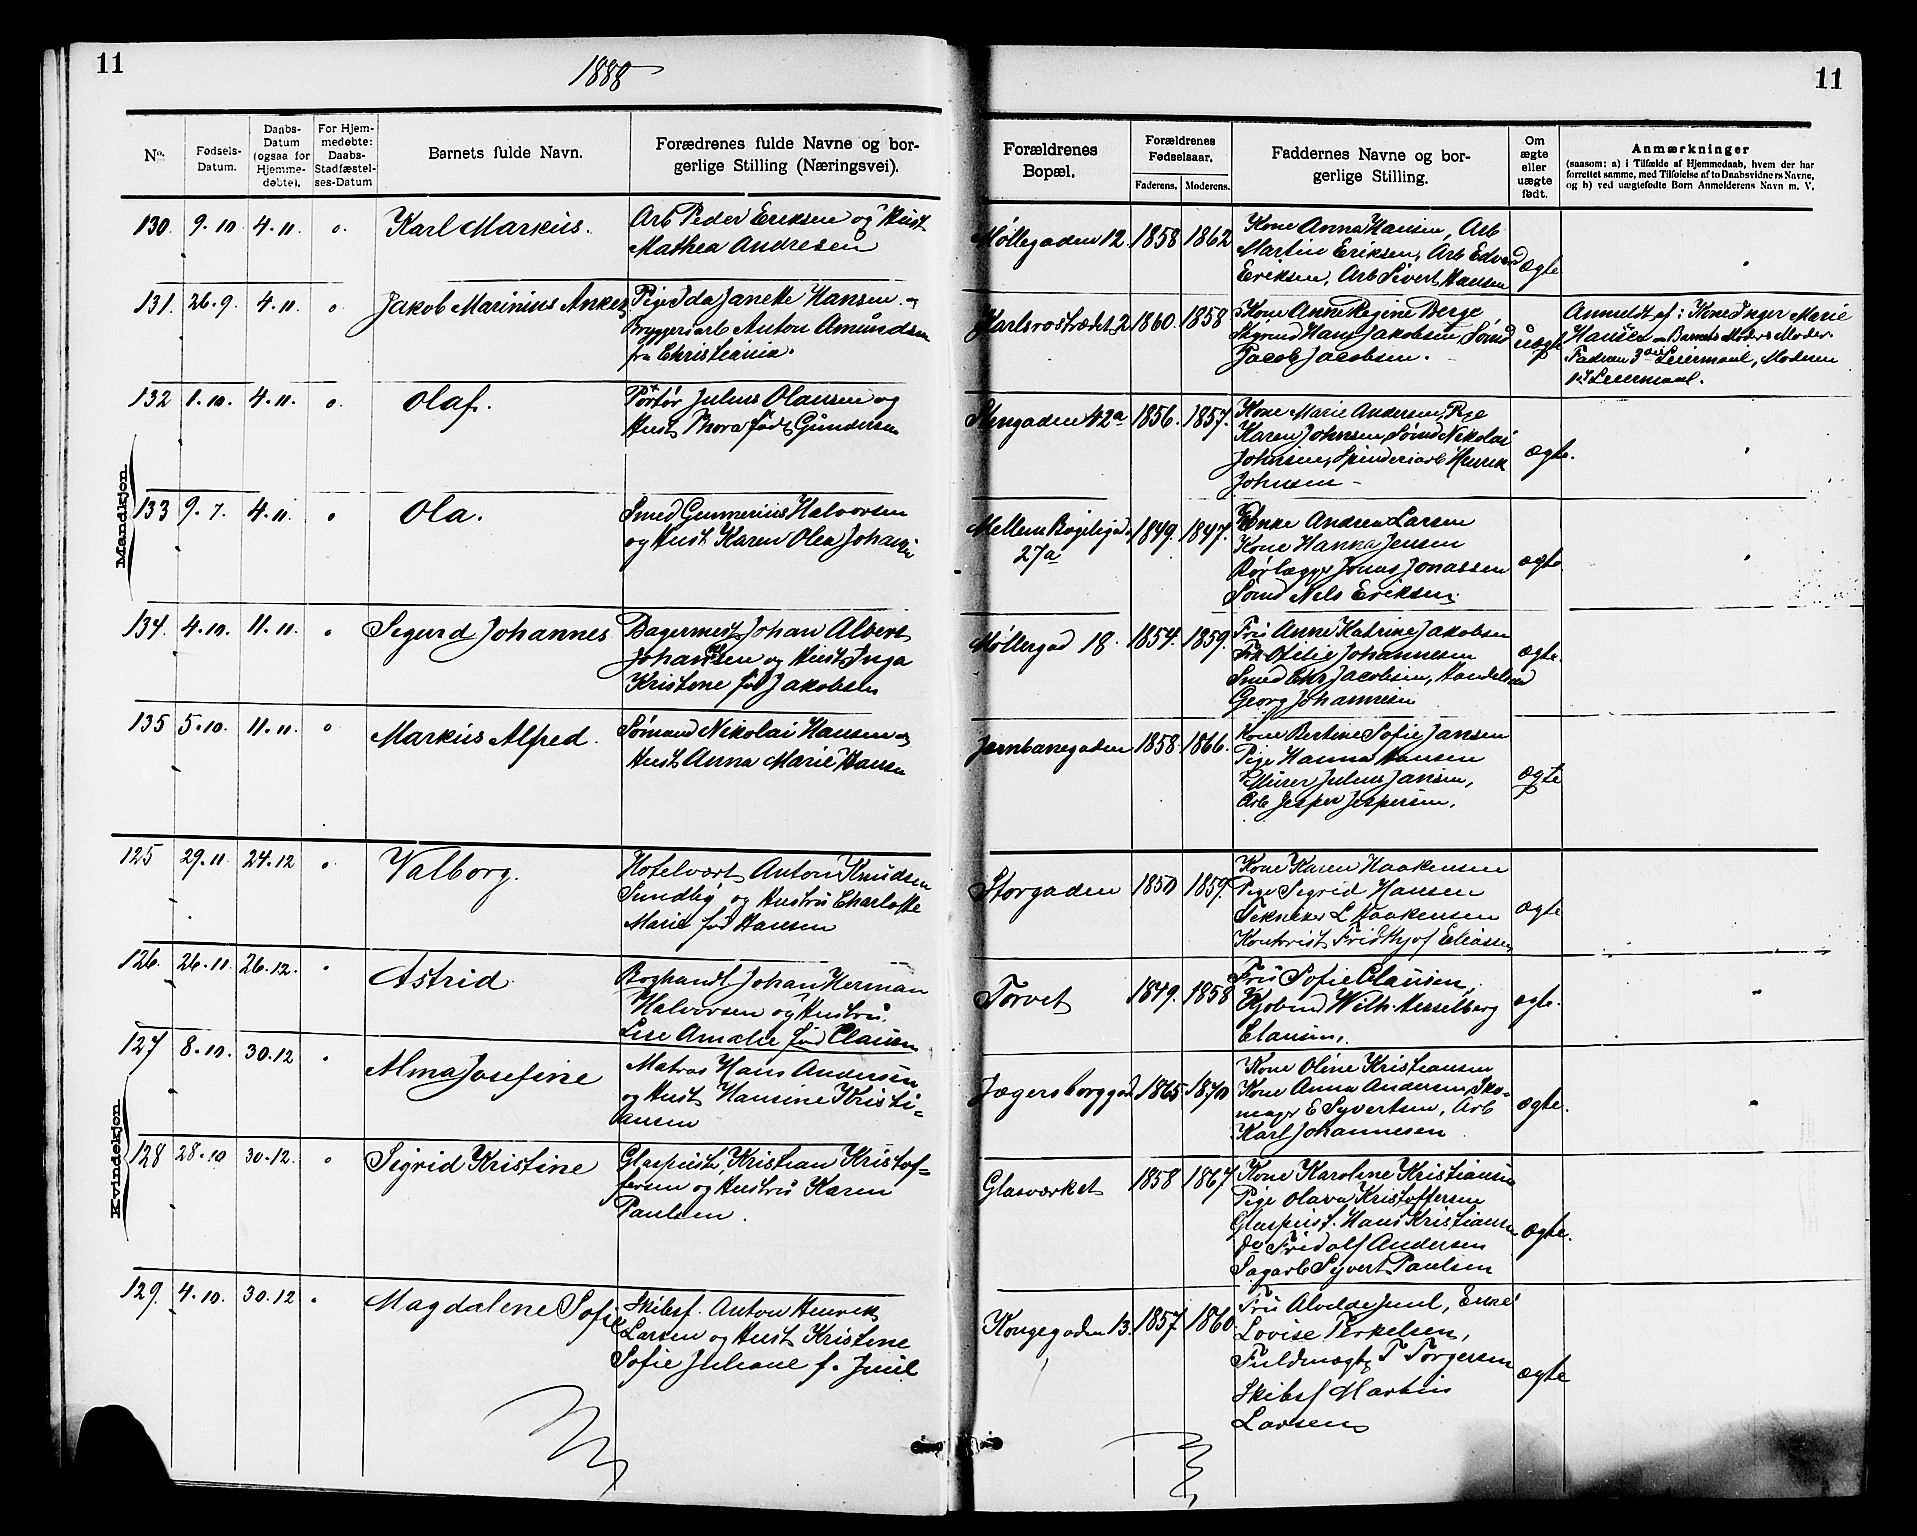 11
1888
11
No.
Fødsels-
Datum.
Daabs-
Datum
(ogsaa for
Hjemme-
døbte).
For Hjem-
medøbte:
Daabs-
Stadfæstel-
ses-Datum
Barnets fulde Navn.
Forædrenes fulde Navne og bor-
gerlige Stilling (Næringsvei).
Forældrenes
Bopæl.
Forældrenes
Fødselsaar.
Faderens. Moderens.
Faddernes Navne og bor-
gerlige Stilling.
Om
ægte
eller
uægte
født.
Anmærkninger
(saasom: a) i Tilfælde af Hjemmedaab, hvem der har
forrettet samme, med Tilføielse af to Daabsvidners Navne,
og b) ved uægtefødte Børn Anmelderens Navn m. V.
Mandkjøn
130. 9.10 4.11. o. Karl Markus.
Arb Peder Eriksen og Hust
Mathea Andresen
Møllegaden 12. 1858 1862
Kone Anna Hansen, Arb
Martin Eriksen, Arb Edvard
Eriksen, Arb Sivert Hansen
ægte
131. 26.9. 4.11. o Jakob Marinius Anker
Pige Ida Janette Hansen og
Bryggeriarb Anton Amundsen
fra Christiania.
Karlsrostrædet 2 1860. 1858
Kone Anne Regine Berge
Hans Jakobsen, Sømd
Jacob Jacobsen.
uægte
Anmeldt af: Kone Inger Marie
Hansen Barnets Moders Moder.
Faderen 3die Leiermaal, Moderen
1st Leiermaal.
132 1.10. 4.11. o. Olaf.
Portør Julius Olausen og
Hust Thora født Gundersen
Stengaden 42a 1856. 1857.
Kone Marie Andersen, Pige
Karen Johnsen, Sømd Nikolai
Johnsen, Spinderiarb Henrik
Johnsen
ægte.
133 9.7. 4.11. o Ola.
Smed Gunnerius Halvorsen
og Hust Karen Olea Johansen
Mellem Bøgeligad.
27a
1849. 1847.
Enke Andrea Larsen
Kone Hanna Jensen
Rørlægger Jonas Jonassen
Sømd Nels Eriksen.
ægte
134. 4.10. 11.11. o Sigurd Johannes
Bagermest Johan Albert
Johansen og Hust Inga
Kristine fød Jakobsen
Møllergad 18. 1854. 1859.
Fru Anne Katrine Jakobsen
Frk Otilie Johannesen
Smed Chr Jacobsen, Handelsmd
Georg Johannesen
ægte.
135 5.10. 11.11. o Markus Alfred.
Sømand Nikolai Hansen og
Hust Anna Marie Hansen
Jernbanegaden 1858. 1866.
Kone Bertine Sofie Jansen
Pige Hanna Hansen
Murer Julius Jansen,
Arb Jesper Jespersen.
ægte
Kvindekjøn
125 29.11. 24.12 o. Valborg.
Hotelvært Anton Knudsen
Sundby og Hustru Charlotte
Marie fød Hansen
Storgaden 1850 1859.
Kone Karen Haakensen
Pige Sigrid Hansen
Tekniker L Haakensen
Kontorist Fridthjof Eliassen
ægte
126. 26.11. 26.12. Astrid.
Boghandl Johan Herman
Halvorsen og Hustru
Lise Amalie fød Clausen
Torvet 1849. 1858
Fru Sofie Clausen,
Kjøbmd Wilh. Hesselberg
Clausen.
ægte.
127 8.10. 30.12 Alma Josefine
Matros Hans Andersen
og Hust Hansine Kristi-
ansen
Jægersborggad 1865. 1870
Kone Oline Kristiansen
Kone Anna Andersen, Sko-
mager E Syvertsen, Arb
Karl Johannesen
ægte.
128 28.10 30.12. o Sigrid Kristine
Glaspuster Kristian Kristof-
fersen og Hustru Karen
Paulsen.
Glasværket 1858 1867
Kone Karoline Kristiansen
Pige Olava Kristoffersen
Glaspust. Hans Kristiansen
do Fridolf Andersen
Sagarb Syvert Paulsen
ægte.
129. 4.10. 30.12 Magdalene Sofie
Skibsf. Anton Henrik
Larsen og Hust Kristine
Sofie Juliane f. Juul
Kongegaden 13. 1857. 1860.
Fru Alvilde Juul, Enke
Lovise Terkelsen,
Fuldmægtg T Torgersen
Skibsf Martin
Larsen
ægte